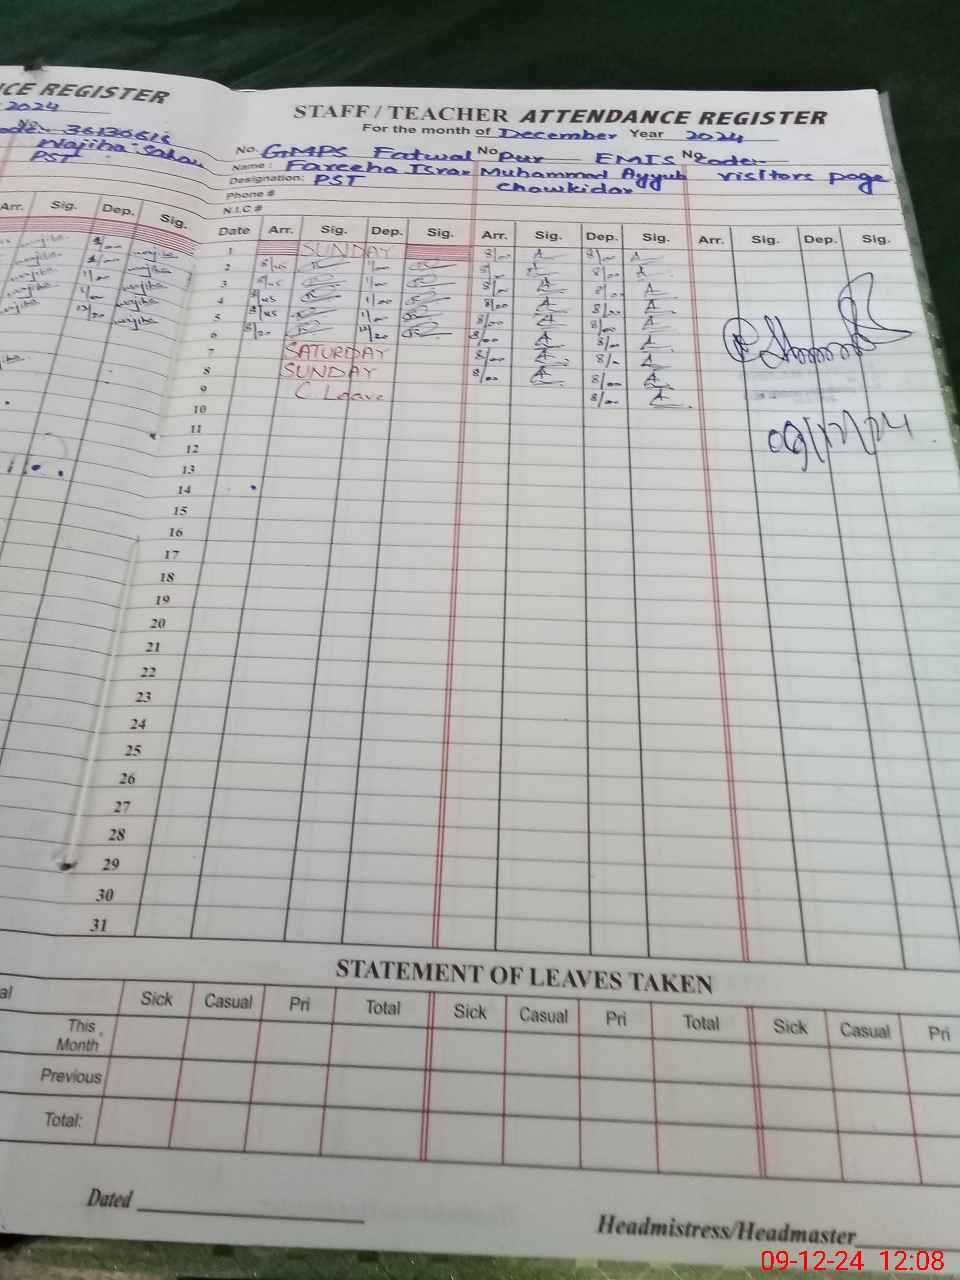 CE REGISTER
2024
Wajiha Sahar
PST
Arr. Sig. Dep. Sig.
STAFF / TEACHER ATTENDANCE REGISTER
For the month of December Year 2024
No. GMPS Fatwal No Pur EMIS No Code:-
Name: Fareeha Israr Muhammad Ayyub visitors page
Designation: PST Chowkidar
Phone #
N.I.C #
Date Arr. Sig. Dep. Sig. Arr. Sig. Dep. Sig. Arr. Sig. Dep. Sig.
1 SUNDAY 8/00 8/00
2 8/45 1/00 8/00 8/00
3 8/45 1/00 8/00 8/00
4 8/45 1/00 8/00 8/00
5 8/45 1/00 8/00 8/00
6 8/20 12/20 8/00
7 SATURDAY 8/00
8 SUNDAY 8/00 8/00
9 C Leave 8/00
10
09/12/24
11
12
13
14
15
16
17
18
19
20
21
22
23
24
25
26
27
28
29
30
31
STATEMENT OF LEAVES TAKEN
al Sick Casual Pri Total Sick Casual Pri Total Sick Casual Pri
This Month
Previous
Total:
Dated
Headmistress/Headmaster
09-12-24 12:08